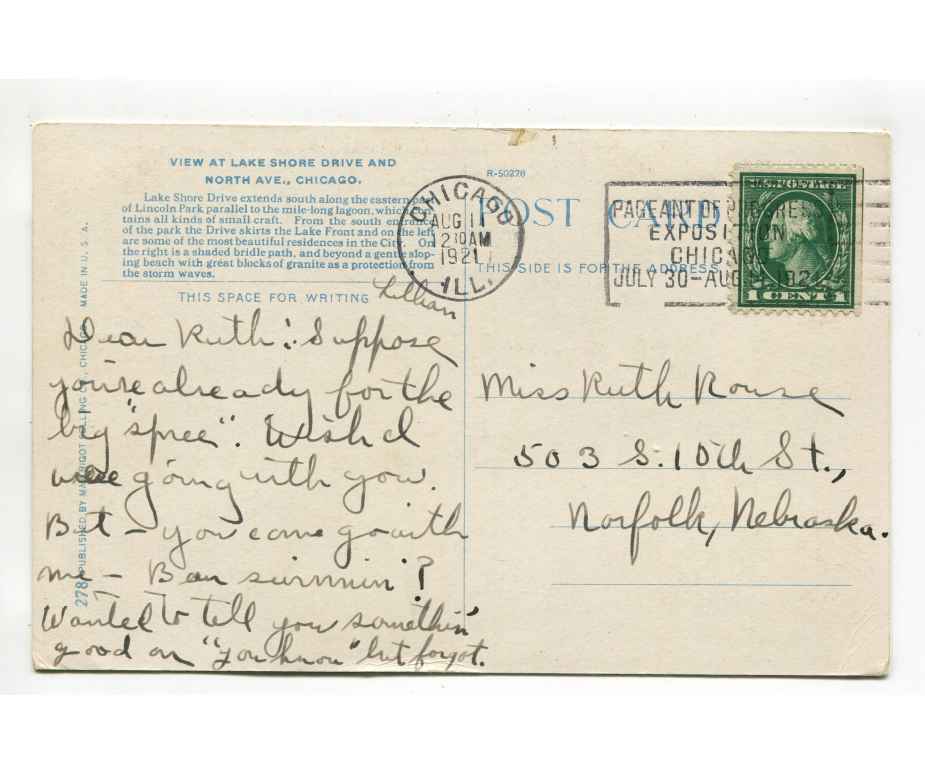 VIEW AT LAKE SHORE DRIVE AND
NORTH AVE., CHICAGO.
Lake Shore Drive extends south along the eastern part
of Lincoln Park, parallel to the mile-long lagoon, which
tains all kinds of small craft. From the south entrance
of the park the Drive skirts the Lake Front and on the left
are some of the most beautiful residences in the City. On
the right is a shaded bridle path, and beyond a gentle slop-
ing beach with great blocks of granite as a protection from
the storm waves.
THIS SPACE FOR WRITING
Lillian
Dear Ruth: Suppose
you're already for the
big "spree". Wish I
were going with you.
But - you come go with
me - Ben swimmin'?
Wanted to tell you somethin'
good on "you know" but forgot.
278 PUBLISHED BY CHICAGO MADE IN U.S.A.
R-50276
POST CARD
THIS SIDE IS FOR THE ADDRESS
CHICAGO
AUG 11
1921
ILL.
PAGEANT OF
EXPOSITION
CHICAGO
JULY 30-AUG
U.S. POSTAGE
1 CENT 1
Miss Ruth Rouse
503 S. 10th St.,
Norfolk, Nebraska.